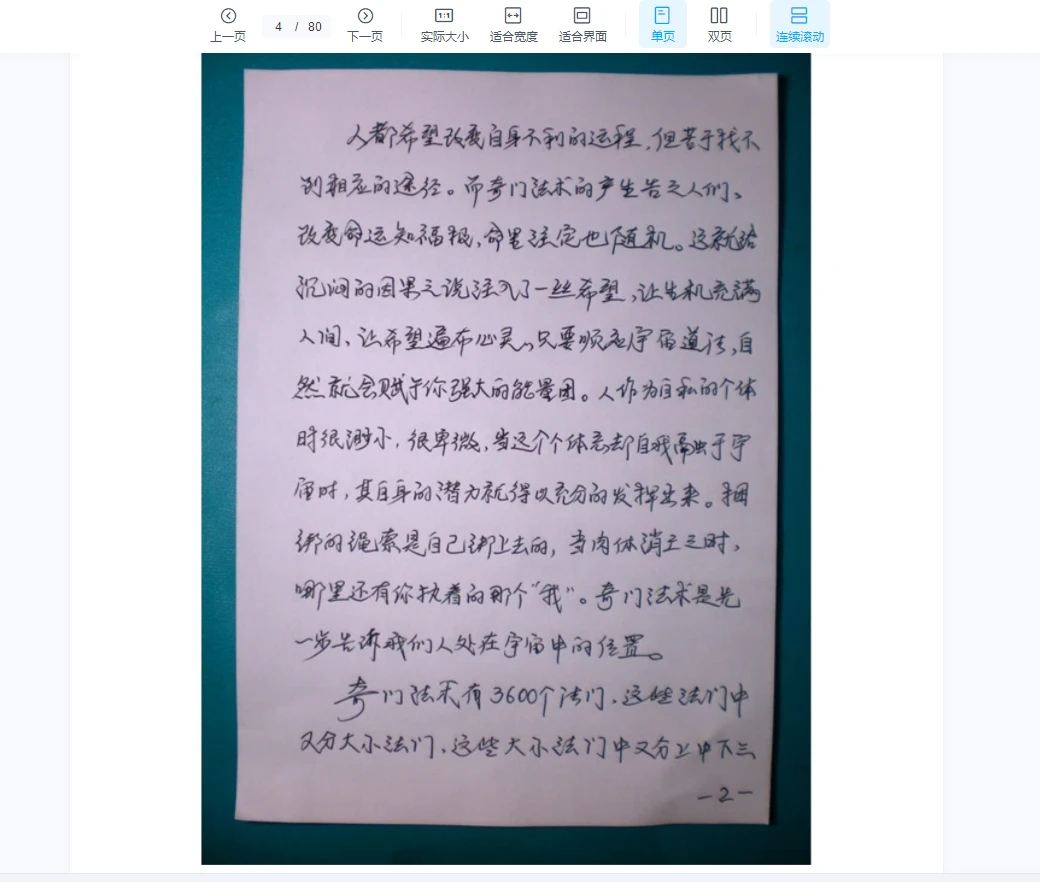 上一页 4 / 80 下一页 1:1 实际大小 适合宽度 适合界面 单页 双页 连续滚动
人都希望改变自身不利的运程,但苦于找不
到相应的途径。而奇门法术的产生告之人们、
改变命运知福报,命里注定也随机。这就给
沉闷的因果之说注入了一丝希望,让生机充满
人间、让希望遍布心灵,只要顺应宇宙道法,自
然就会赋于你强大的能量团。人作为自私的个体
时很渺小,很卑微,当这个个体忘却自我融虫于宇
宙时,其自身的潜力就得以充分的发挥出来。捆
绑的绳索是自己绑上去的,当肉体消亡之时,
哪里还有你执着的那个“我”。奇门法术是先
一步告诉我们人处在宇宙中的位置。
奇门法术有3600个法门、这些法门中
又分大小法门、这些大小法门中又分上中下三
-2-